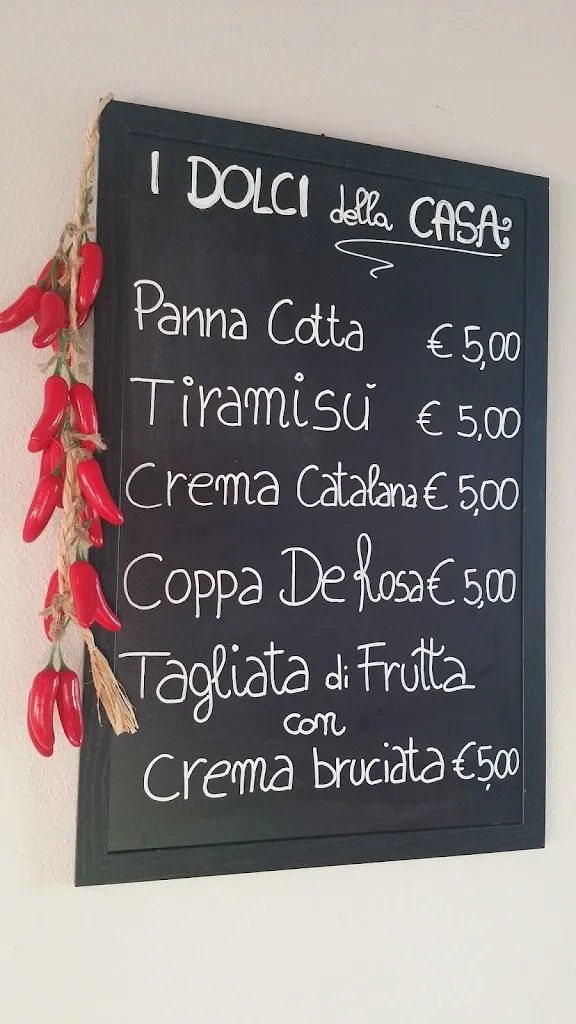 I DOLCI della CASA
Panna Cotta € 5,00
Tiramisù € 5,00
Crema Catalana € 5,00
Coppa De Rosa € 5,00
Tagliata di Frutta
con
Crema bruciata € 5,00